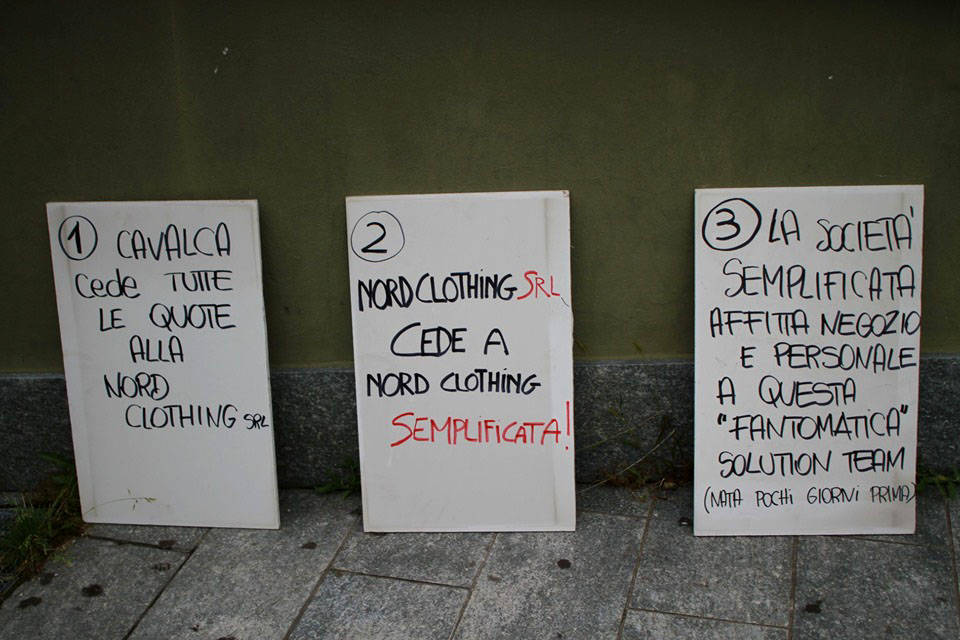 1 CAVALCA
cede TUTTE
LE QUOTE
ALLA
NORD
CLOTHING SRL
2
NORD CLOTHING SRL
CEDE A
NORD CLOTHING
SEMPLIFICATA!
3 LA SOCIETÀ
SEMPLIFICATA
AFFITTA NEGOZIO
E PERSONALE
A QUESTA
"FANTOMATICA"
SOLUTION TEAM
(NATA POCHI GIORNI PRIMA)